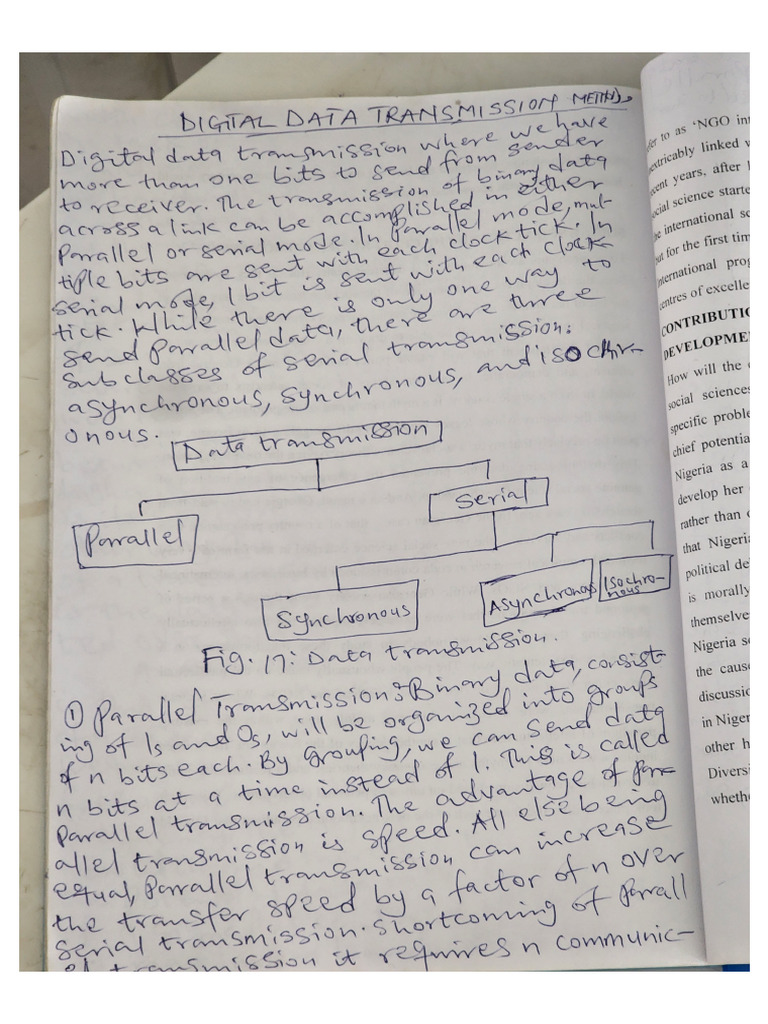 DIGITAL DATA TRANSMISSION METHD
Digital data transmission where we have
more than one bits to send from sender
to receiver. The transmission of binary data
across a link can be accomplished in either
Parallel or serial mode. In Parallel mode, mul-
tiple bits are sent with each clock tick. In
serial mode, 1 bit is sent with each clock
tick. While there is only one way to
send Parallel data, there are three
subclasses of serial transmission:
asynchronous, synchronous, and isochr-
onous.
Data transmission
Serial
Parallel
Synchronous
Asynchronous
Isochro-
nous
Fig. 17: Data transmission.
① Parallel Transmission: Binary data, consist-
ing of 1s and 0s, will be organized into groups
of n bits each. By Grouping, we can send data
n bits at a time instead of 1. This is called
Parallel transmission. The advantage of par-
allel transmission is speed. All else being
equal, Parallel transmission can increase
the transfer speed by a factor of n over
serial transmission. Shortcoming of Parall
el transmission it requires n communic-
fer to as 'NGO in
extricably linked w
cent years, after
ocial science starte
e international so
ut for the first tim
nternational prog
entres of excelle
CONTRIBUTIO
DEVELOPME
How will the
social sciences
specific proble
chief potentia
Nigeria as a
develop her
rather than
that Nigeria
political de
is morally
themselve
Nigeria se
the cause
discussio
in Niger
other h
Diversi
wheth